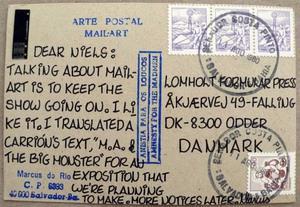 ARTE POSTAL
MAIL-ART
DEAR NIELS:
TALKING ABOUT MAIL-
ART IS TO KEEP THE
SHOW GOING ON. I LI
KE IT. I TRANSLATED A
CARRION'S TEXT, "M.A. &
THE BIG MONSTER" FOR AN
EXPOSITION THAT
WE'RE PLANNING
TO MAKE. MORE NOTICES LATER.
Marcus do Rio
C. P. 6393
40 000 Salvador-Ba.
ANISTIA PARA OS LOUCOS
AMNESTY FOR THE MADMEN
COSTA PINTO
1980
LOMHOLT FORMULAR PRESS
ÅKJÆRVEJ 49-FALLING
DK-8300 ODDER
DANMARK
COSTA PINTO